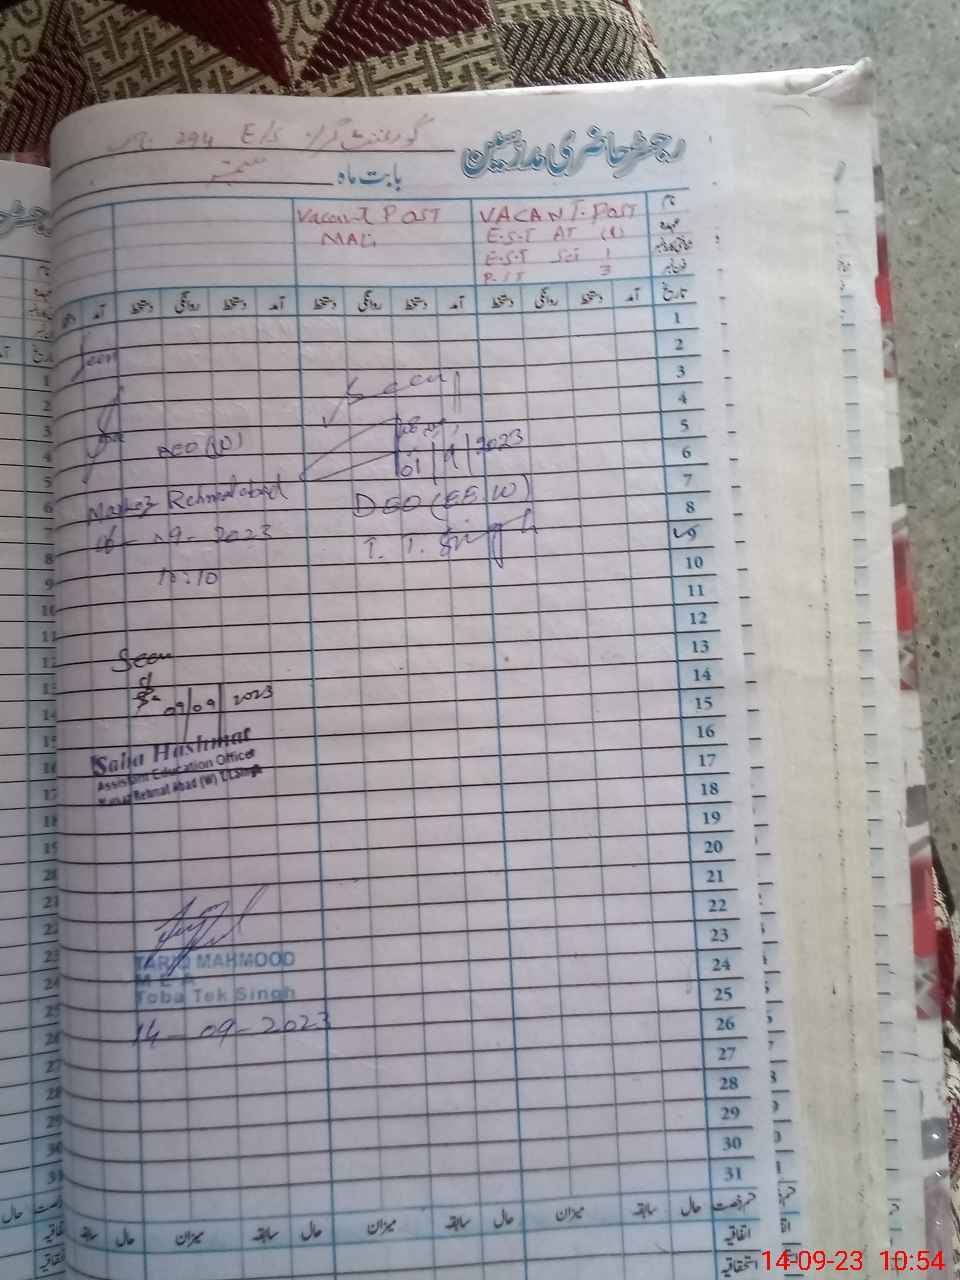 رجسٹر حاضری مدرسین گورنمنٹ گرلز E/S 294
بابت ماہ ستمبر
نام VACANT. POST Vacant POST
عہدہ E.S.T AT (1) MALI
E.S.T Sci 1
3
تاریخ آمد دستخط روانگی دستخط آمد دستخط روانگی دستخط آمد دستخط روانگی دستخط آمد
1
2
3
4
5
6
7
8
10
11
12
13
14
15
16
17
18
19
20
21
22
23
24
25
26
27
28
29
30
31
Seen
AEO (W)
Markaz Rehmatabad
06-09-2023
10:10
Seen
01/9/2023
DEO (EE W)
T. T. Singh
Seen
09/09/2023
Saira Hashmat
Assistant Education Officer
Markaz Rehmat Abad (W) T.T.Singh
TARIQ MAHMOOD
M E A
Toba Tek Singh
14-09-2023
قسم رخصت حال سابقہ میزان حال سابقہ میزان حال سابقہ میزان حال سابقہ
اتفاقیہ
استحقاقیہ
14-09-23 10:54